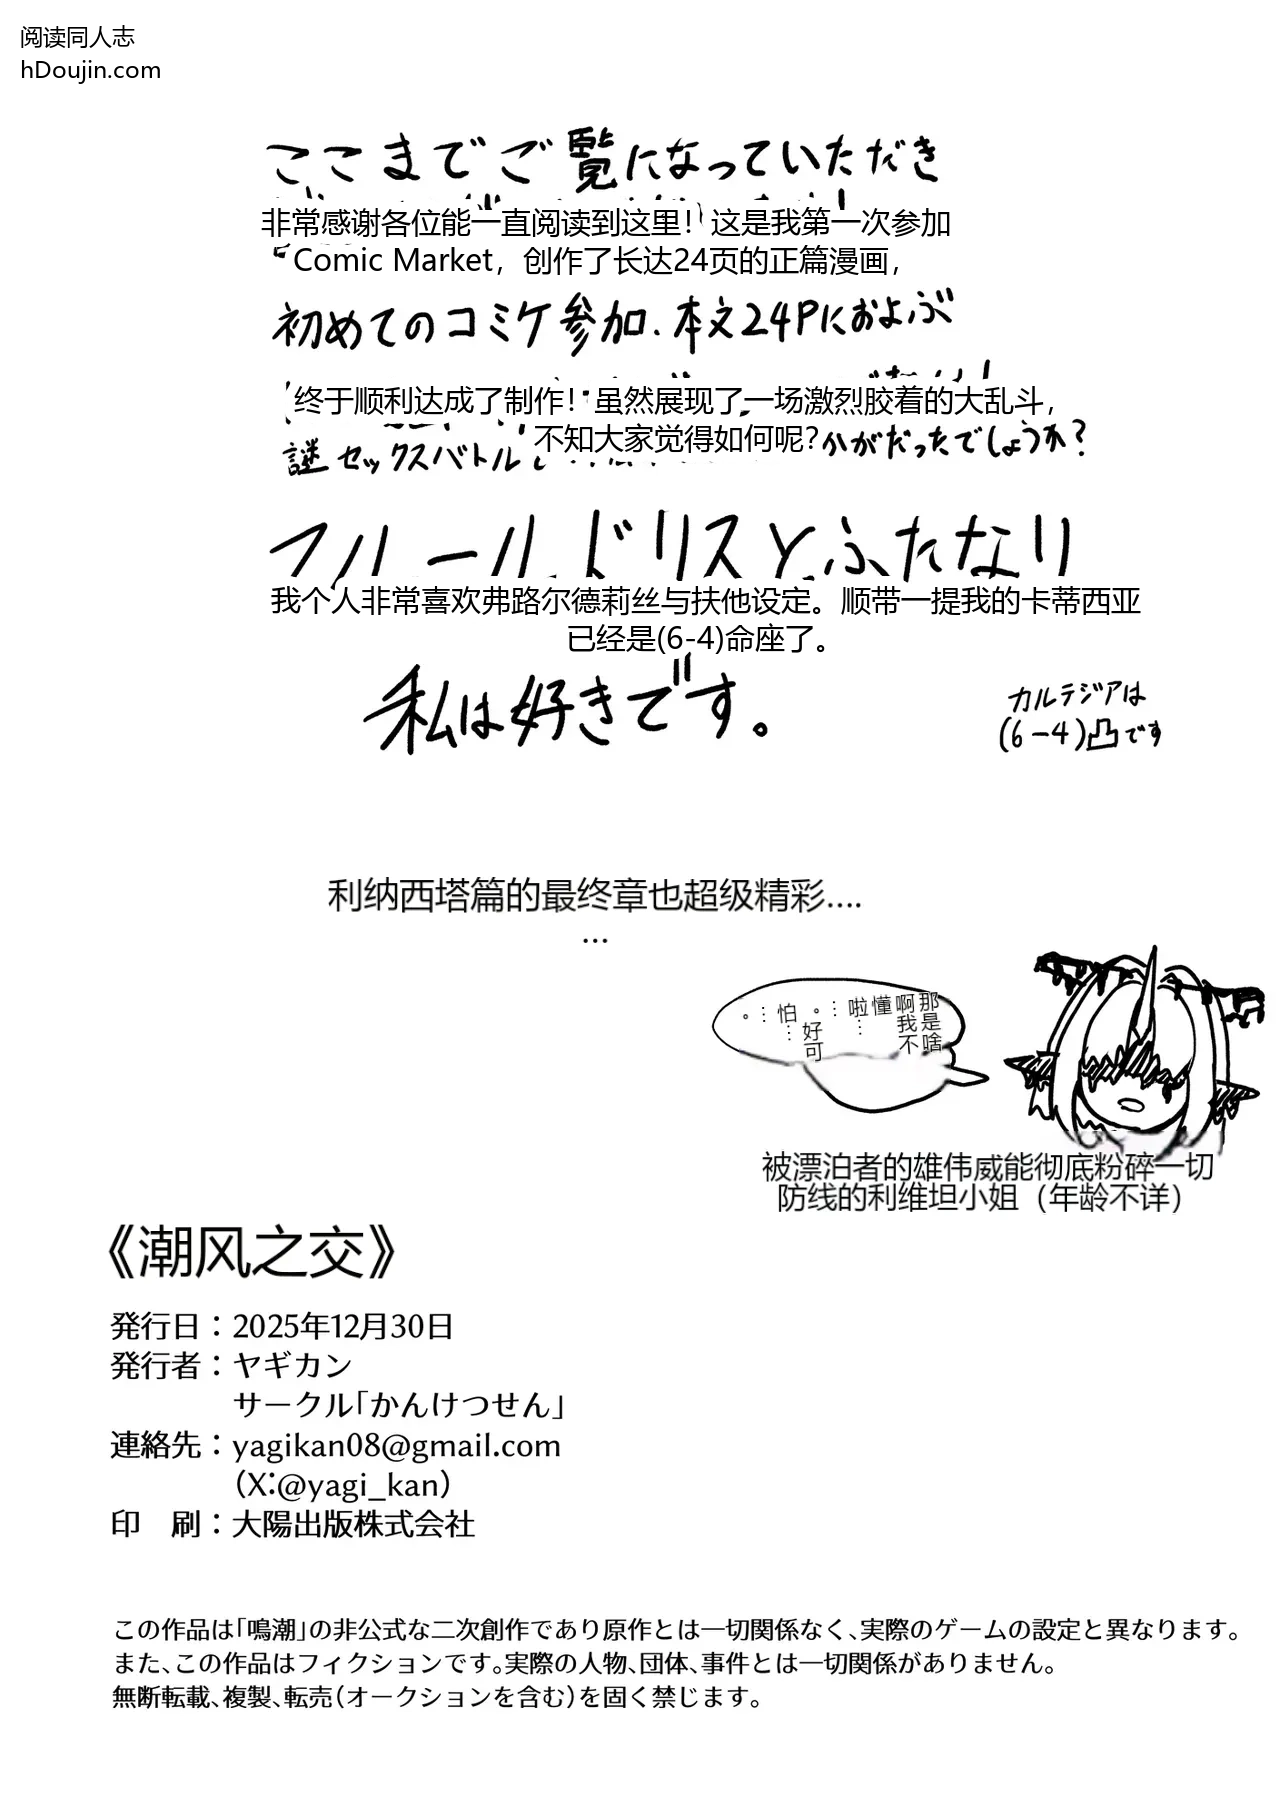 阅读同人志
hDoujin.com
ここまでご覧になっていただき
非常感谢各位能一直阅读到这里！这是我第一次参加
Comic Market，创作了长达24页的正篇漫画，
初めてのコミケ参加、本文24Pにおよぶ
终于顺利达成了制作！虽然展现了一场激烈胶着的大乱斗，
不知大家觉得如何呢？
謎セックスバトル
かがだったでしょうか？
フルールドリスとふたなり
我个人非常喜欢弗路尔德莉丝与扶他设定。顺带一提我的卡蒂西亚
已经是(6-4)命座了。
私は好きです。
カルテジアは
(6-4)凸です
利纳西塔篇的最终章也超级精彩....
...
那是啥
啊我不
懂
啦…
…
。好可
怕…
…
。
被漂泊者的雄伟威能彻底粉碎一切
防线的利维坦小姐（年龄不详）
《潮风之交》
発行日：2025年12月30日
発行者：ヤギカン
サークル「かんけつせん」
連絡先：yagikan08@gmail.com
（X:@yagi_kan）
印　刷：大陽出版株式会社
この作品は「鳴潮」の非公式な二次創作であり原作とは一切関係なく、実際のゲームの設定と異なります。
また、この作品はフィクションです。実際の人物、団体、事件とは一切関係がありません。
無断転載、複製、転売（オークションを含む）を固く禁じます。